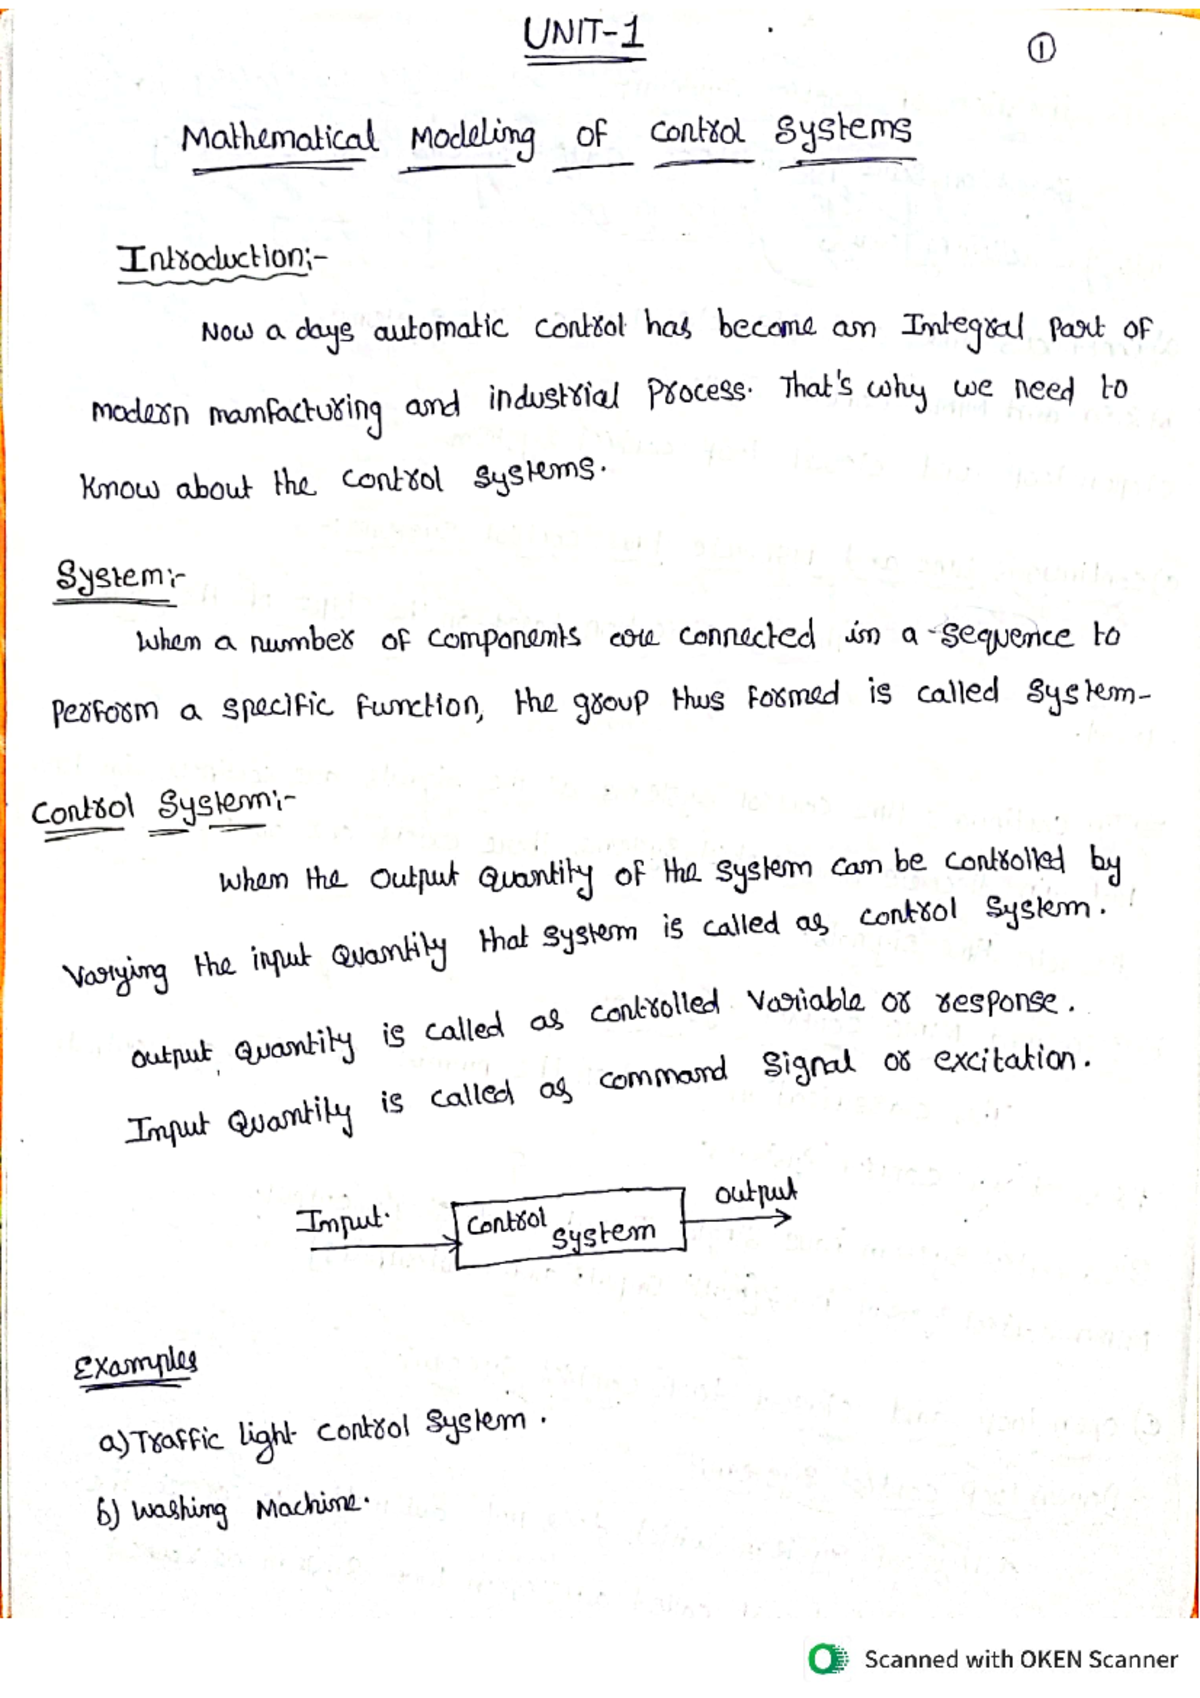 UNIT-1
1
Mathematical Modeling of Control Systems
Introduction:-
Now a days automatic control has become an Integral Part of
modern manfacturing and industrial Process. That's why we need to
Know about the control systems.
System:-
When a number of components are connected in a sequence to
Perform a specific function, the group thus formed is called system-
Control System:-
When the output Quantity of the system can be controlled by
Varying the input Quantity that system is called as control system.
output Quantity is called as controlled Variable or response.
Input Quantity is called as command Signal or excitation.
Input.
output
Control
System
Examples
a) Traffic light control System.
b) Washing Machine.
Scanned with OKEN Scanner